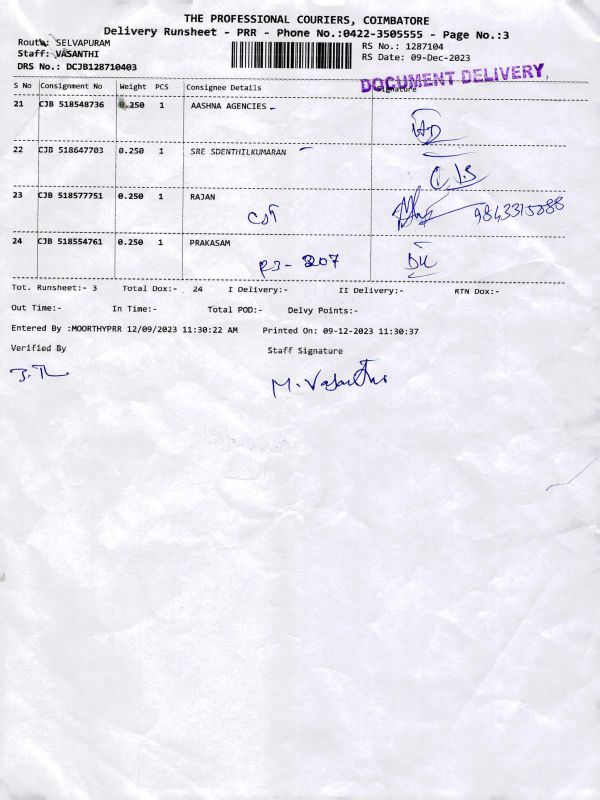 THE PROFESSIONAL COURIERS, COIMBATORE
Delivery Runsheet - PRR - Phone No.:0422-3505555 - Page No.:3
Route: SELVAPURAM
RS No.: 1287104
Staff: VASANTHI
RS Date: 09-Dec-2023
DRS No.: DCJB128710403
DOCUMENT DELIVERY
S No Consignment No Weight PCS Consignee Details Signature
21 CJB 518548736 0.250 1 AASHNA AGENCIES
22 CJB 518647703 0.250 1 SRE SDENTHILKUMARAN
23 CJB 518577751 0.250 1 RAJAN
24 CJB 518554761 0.250 1 PRAKASAM
Tot. Runsheet:- 3 Total Dox:- 24 I Delivery:- II Delivery:- RTN Dox:-
Out Time:- In Time:- Total POD:- Delvy Points:-
Entered By :MOORTHYPRR 12/09/2023 11:30:22 AM Printed On: 09-12-2023 11:30:37
Verified By Staff Signature
M. Vasanthi